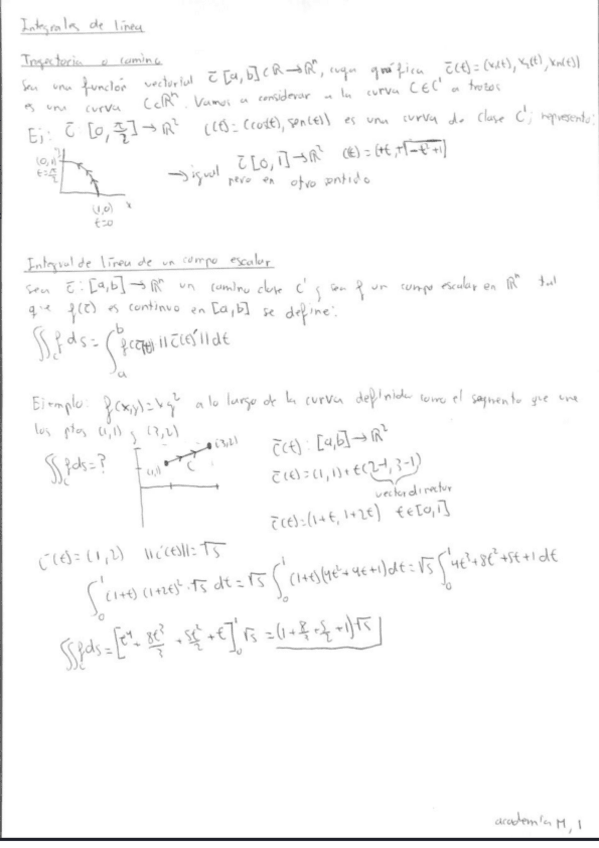 Integrales de línea
Trayectoria o camino
Sea una función vectorial c̄ [a,b] ⊂ ℝ → ℝⁿ, cuya gráfica c̄(t) = (x₁(t), x₂(t), xₙ(t))
es una curva C ⊂ ℝⁿ. Vamos a considerar a la curva C ∈ C' a trozos
Ej: c̄ : [0, π/2] → ℝ² c(t) = (cos(t), sen(t)) es una curva de clase C'; representa:
(0,1)
t=π/2
(1,0) x
t=0
c̄ [0,1] → ℝ²
→ igual pero en otro sentido
Integral de línea de un campo escalar
Sea c̄ : [a,b] → ℝⁿ un camino clase C' y sea f un campo escalar en ℝⁿ tal
que f(c̄) es continuo en [a,b] se define:
∬_c f ds = ∫_a^b f(c̄(t)) ||c̄(t)'|| dt
Ejemplo: f(x,y) = xy² a lo largo de la curva definida como el segmento que une
los ptos (1,1) y (3,2)
∬_c f ds = ?
(1,1) C (3,2)
c̄(t) : [a,b] → ℝ²
c̄(t) = (1,1) + t(2-1, 3-1)
vector director
c̄(t) = (1+t, 1+2t) t ∈ [0,1]
c̄'(t) = (1,2) ||c'(t)|| = √5
∫_0^1 (1+t) (1+2t)² · √5 dt = √5 ∫_0^1 (1+t)(4t²+4t+1) dt = √5 ∫_0^1 4t³+8t²+5t+1 dt
∬_c f ds = [t⁴ + 8t³/3 + 5t²/2 + t]_0^1 √5 = (1 + 8/3 + 5/2 + 1)√5
academia M, 1